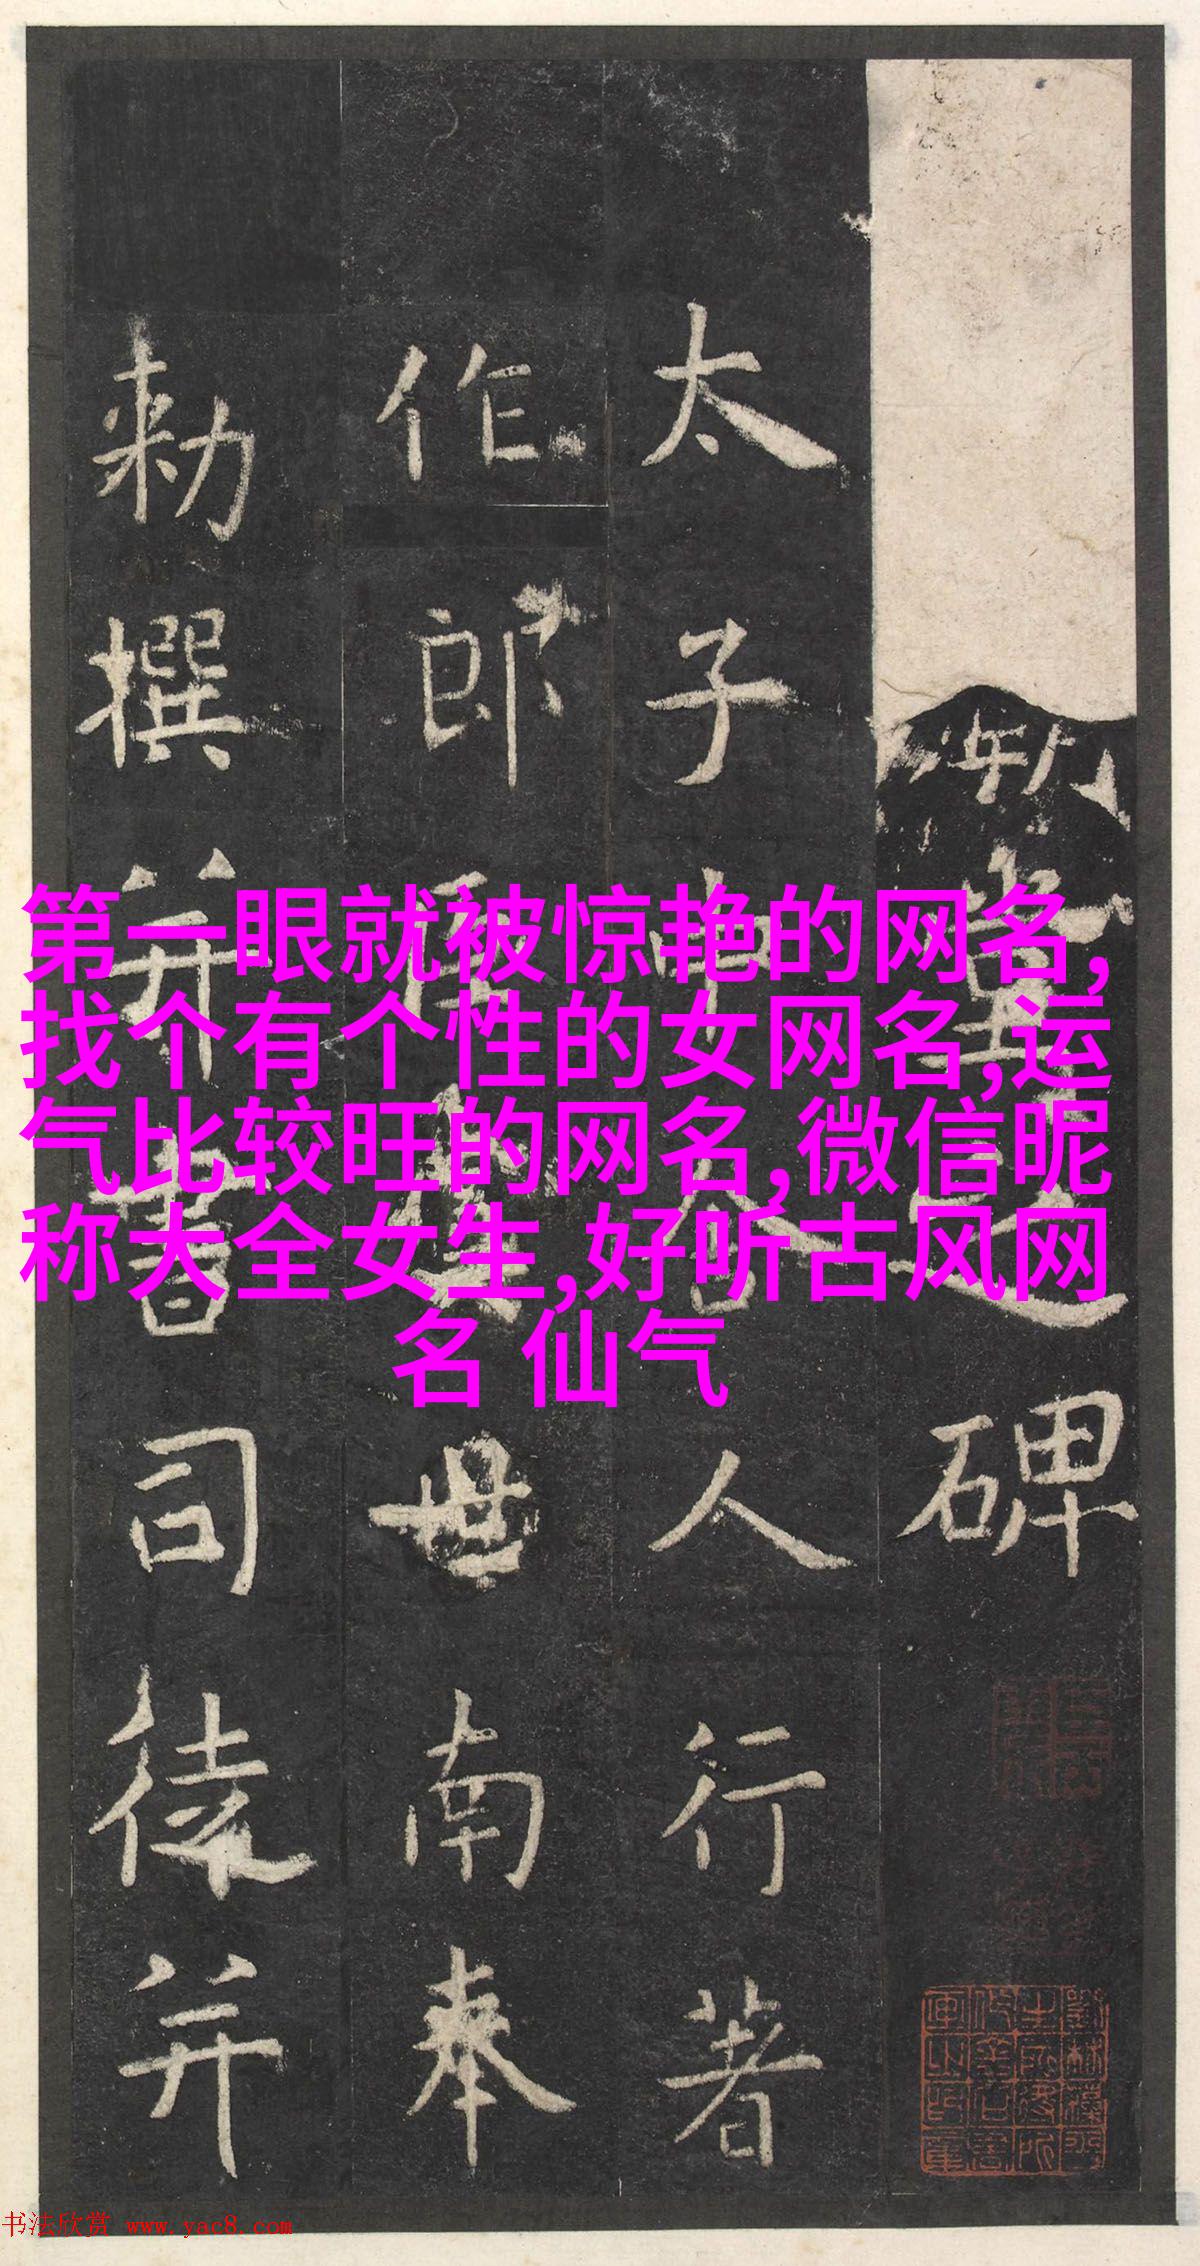 第一眼就被惊艳的网名,
找个有个性的女网名,运
气比较旺的网名,微信昵
称大全女生,好听古风网
名 仙气
堂之碑
太子中舍人行著
作郎臣虞世南奉
勅撰并書司徒并
书法欣赏 www.yac8.com